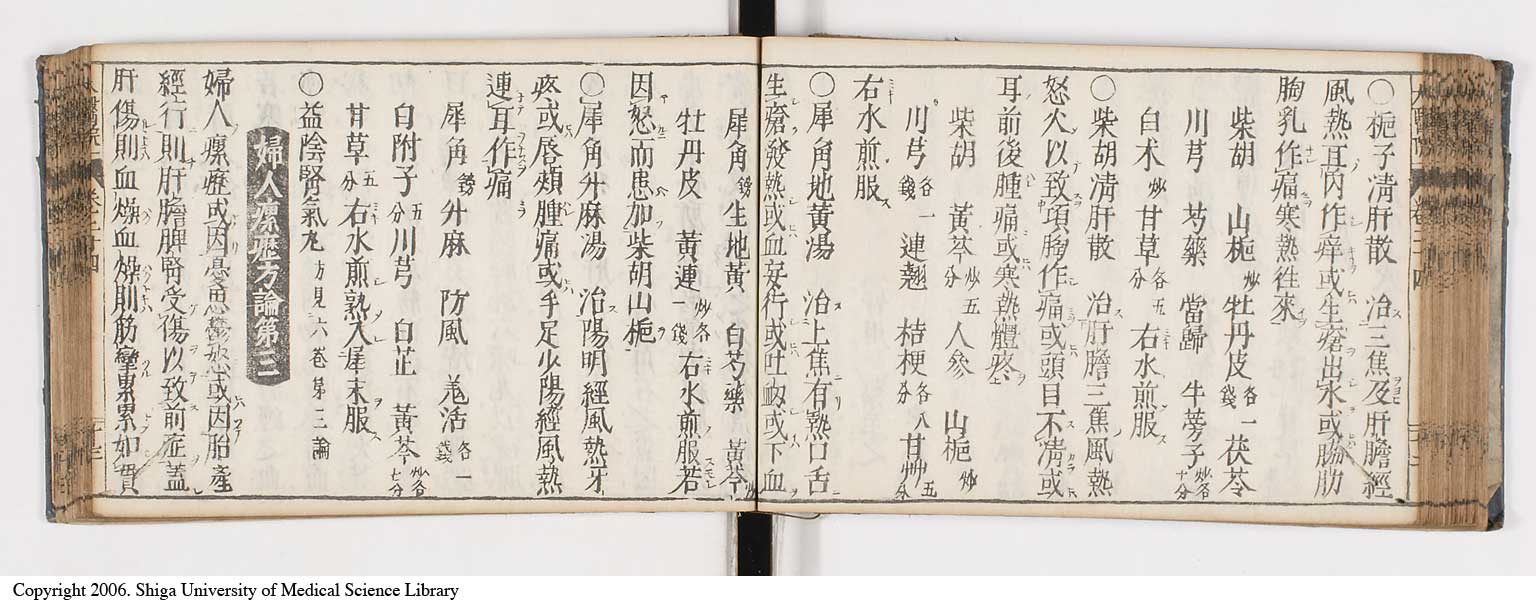 〇梔子淸肝散　治三焦及肝膽經
風熱耳內作痒或生瘡出水或脇肋
胸乳作痛寒熱往來
柴胡　山梔炒　牡丹皮各一錢　茯苓
川芎　芍藥　當歸　牛蒡子炒各十分
白朮炒　甘草各五分　右水煎服
〇柴胡淸肝散　治肝膽三焦風熱
怒火以致項胸作痛或頭目不淸或
耳前後腫痛或寒熱體疼
柴胡　黃芩炒五分　人參　山梔炒
川芎各一錢　連翹　桔梗各八分　甘艸五分
右水煎服
〇犀角地黃湯　治上焦有熱口舌
生瘡發熱或血妄行或吐衂或下血
犀角鎊　生地黃　白芍藥　黃芩炒
牡丹皮　黃連炒各一錢　右水煎服若
因怒而患加柴胡山梔
〇犀角升麻湯　治陽明經風熱牙
疼或唇頰腫痛或手足少陽經風熱
連耳作痛
犀角鎊　升麻　防風　羌活各一錢
白附子五分　川芎　白芷　黃芩炒各七分
甘草五分　右水煎熟入犀末服
〇益陰腎氣丸方見六卷第三論
婦人瘰癧方論第三
婦人瘰癧或因憂思鬱怒或因胎產
經行則肝膽脾腎受傷以致前症蓋
肝傷則血燥血燥則筋攣累累如貫
Copyright 2006. Shiga University of Medical Science Library